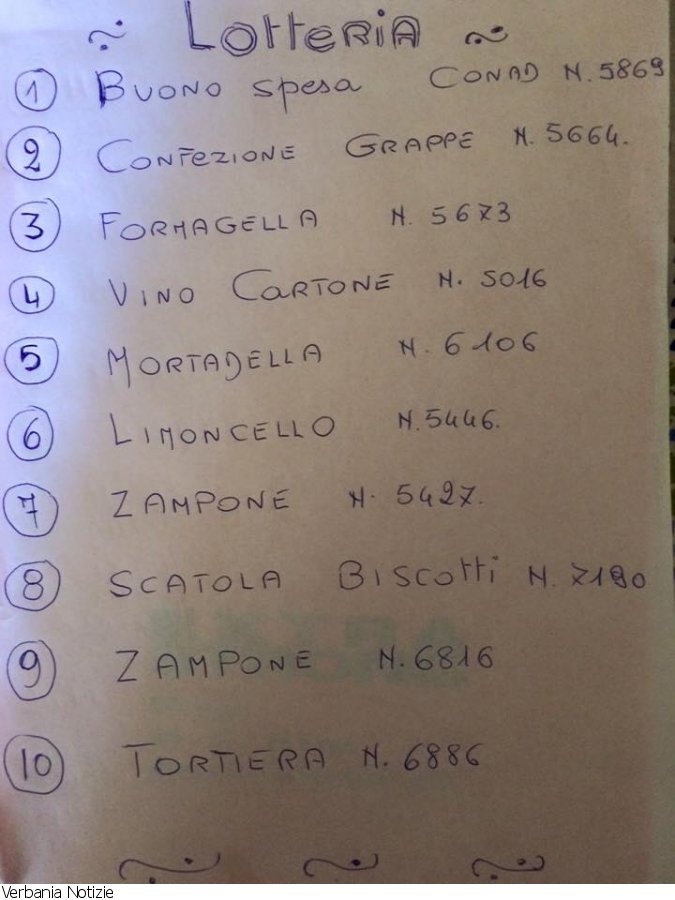 Lotteria
1 Buono spesa CONAD N. 5869
2 Confezione GRAPPE N. 5664.
3 FORMAGELLA N. 5673
4 VINO CARTONE N. 5016
5 MORTADELLA N. 6106
6 LIMONCELLO N. 5446.
7 ZAMPONE N. 5427.
8 SCATOLA BISCOTTI N. 7190
9 ZAMPONE N. 6816
10 TORTIERA N. 6886
Verbania Notizie